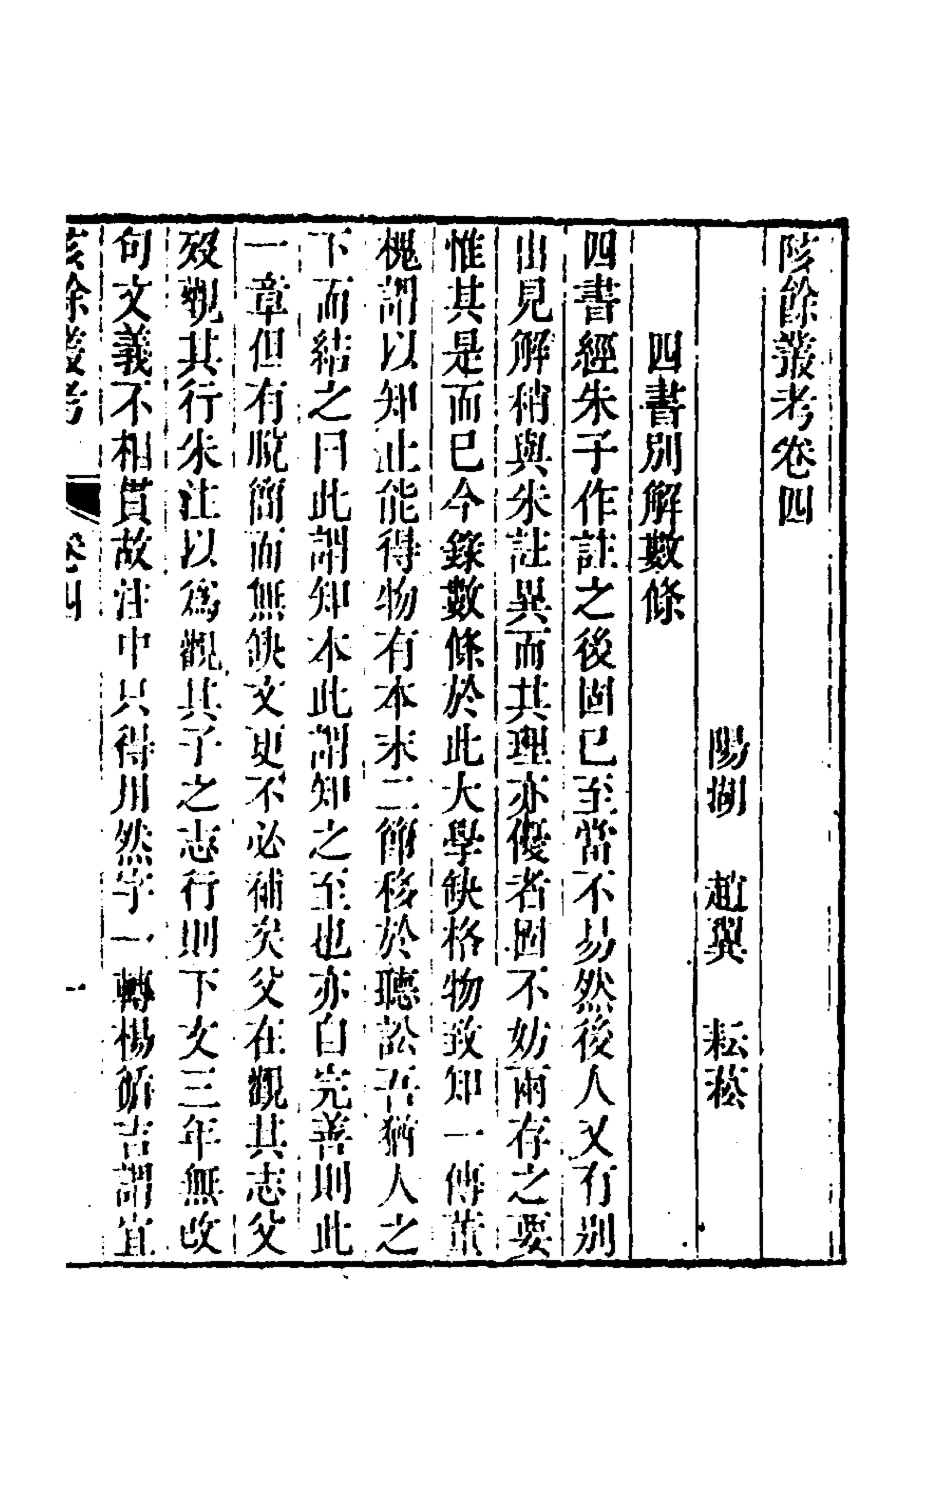 陔餘叢考卷四
陽湖　趙翼　耘菘
四書別解數條
四書經朱子作註之後固已至當不易然後人又有別
出見解稍與朱註異而其理亦優者固不妨兩存之要
惟其是而已今錄數條於此大學缺格物致知一傳董
槐謂以知止能得物有本末二節移於聽訟吾猶人之
下而結之曰此謂知本此謂知之至也亦自完善則此
一章但有脫簡而無缺文更不必補矣父在觀其志父
歿觀其行朱注以為觀其子之志行則下文三年無改
句文義不相貫故注中只得用然字一轉楊循吉謂宜
陔餘叢考　卷四　一